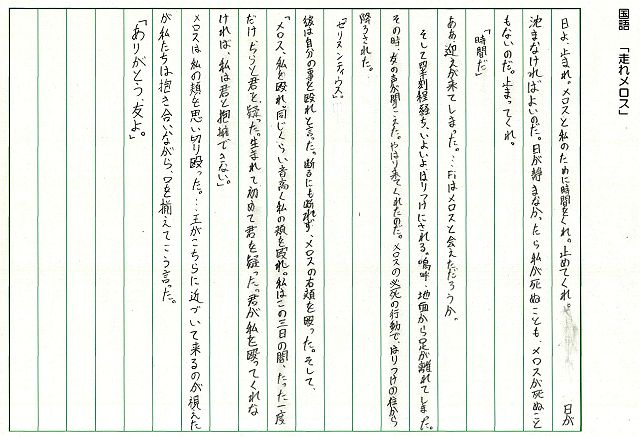 国語 「走れメロス」
日よ、止まれ。メロスと私のために時間をくれ。止めてくれ。 日が
沈まなければよいのだ。日が静まなかったら私が死ぬことも、メロスが死ぬこと
もないのだ。止まってくれ。
「時間だ」
ああ迎えが来てしまった。…Fiはメロスと会えただろうか。
そして四刻経ち、いよいよはりつけにされる。嗚呼、地面から足が離れてしまった。
その時、友の声が聞こえた。やはり来てくれたのだ。メロスの必死の行動で、はりつけの柱から
降ろされた。
「セリヌンティウス」
彼は自分の事を殴れと言った。断るにも断れず、メロスの右頬を殴った。そして、
「メロス、私を殴れ。同じくらい音高く私の頬を殴れ。私はこの三日の間、たった一度
だけちらと君を疑った。生まれて初めて君を疑った。君が私を殴ってくれな
ければ、私は君と抱擁できない」
メロスは私の頬を思い切り殴った。…王がこちらに近づいて来るのが視えた
が私たちは抱き合いながら、口を揃えてこう言った。
「ありがとう、友よ。」